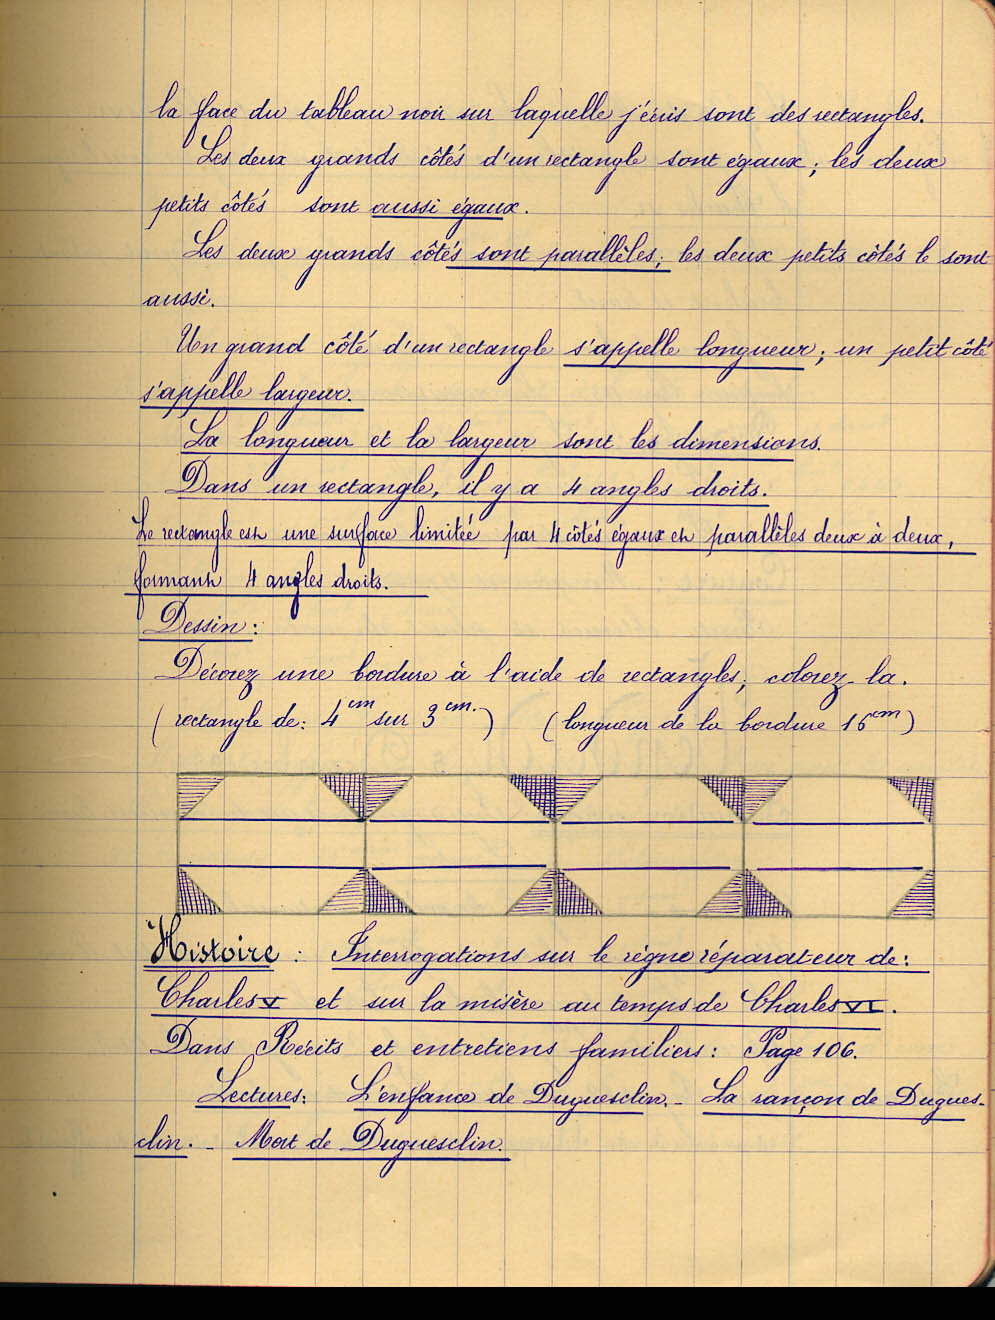 la face du tableau noir sur laquelle j'écris sont des rectangles.
Les deux grands côtés d'un rectangle sont égaux ; les deux
petits côtés sont aussi égaux.
Les deux grands côtés sont parallèles ; les deux petits côtés le sont
aussi.
Un grand côté d'un rectangle s'appelle longueur ; un petit côté
s'appelle largeur.
La longueur et la largeur sont les dimensions.
Dans un rectangle, il y a 4 angles droits.
Le rectangle est une surface limitée par 4 côtés égaux et parallèles deux à deux,
formant 4 angles droits.
Dessin :
Décorez une bordure à l'aide de rectangles ; colorez-la.
( rectangle de : 4 cm sur 3 cm. ) ( longueur de la bordure 16 cm )
Histoire : Interrogations sur le règne réparateur de :
Charles V et sur la misère au temps de Charles VI.
Dans Récits et entretiens familiers : Page 106.
Lectures : L'enfance de Duguesclin. - La rançon de Dugues-
clin. - Mort de Duguesclin.